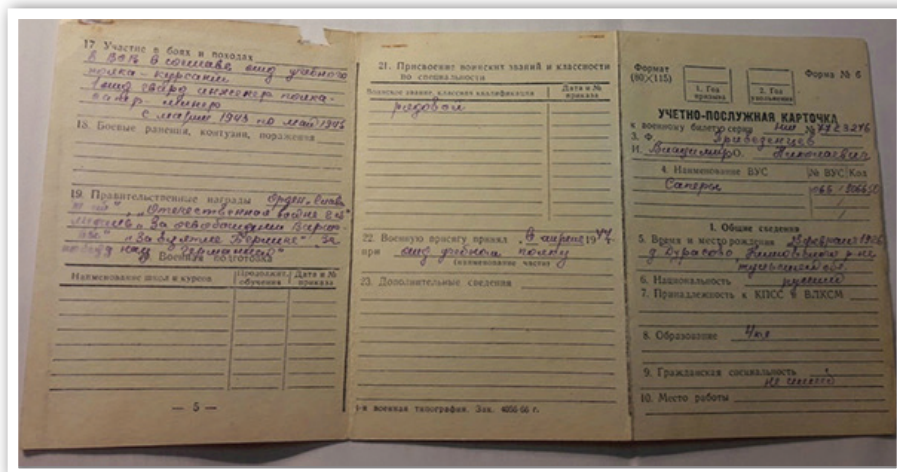 17. Участие в боях и походах
в ВОВ в составе
полка - курсант
гвард инженер полка -
минер
с марта 1943 по май 1945
18. Боевые ранения, контузии, поражения
19. Правительственные награды Орден Слава
"Отечественная война
"За освобождение
"За взятие Берлина", "За
победу над Германией"
20. Военная подготовка
Наименование школ и курсов
Продолжит. обучения
Дата и № приказа
— 5 —
21. Присвоение воинских званий и классности
по специальности
Воинское звание, классная квалификация
Дата и № приказа
рядовой
22. Военную присягу принял в апреле 19
при учебном полку
(наименование части)
23. Дополнительные сведения
1-я военная типография. Зак. 4056-66 г.
Формат
(80×115)
Форма № 6
1. Год
призыва
2. Год
увольнения
УЧЕТНО-ПОСЛУЖНАЯ КАРТОЧКА
к военному билету серия НШ №
3. Ф.
И. Владимир О. Николаевич
4. Наименование ВУС
№ ВУС
Код
Саперы
1. Общие сведения
5. Время и место рождения
д. Дурасово,
6. Национальность русский
7. Принадлежность к КПСС и ВЛКСМ
8. Образование 4 кл
9. Гражданская специальность
не имеет
10. Место работы